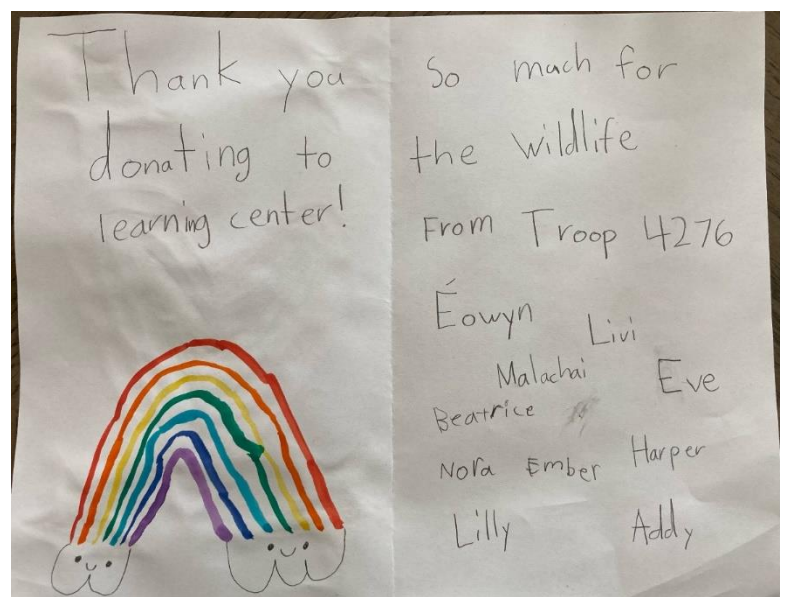 Thank you so much for
donating to the wildlife
learning center!
From Troop 4276
Éowyn
Livi
Malachai
Eve
Beatrice
Nora Ember Harper
Lilly Addy